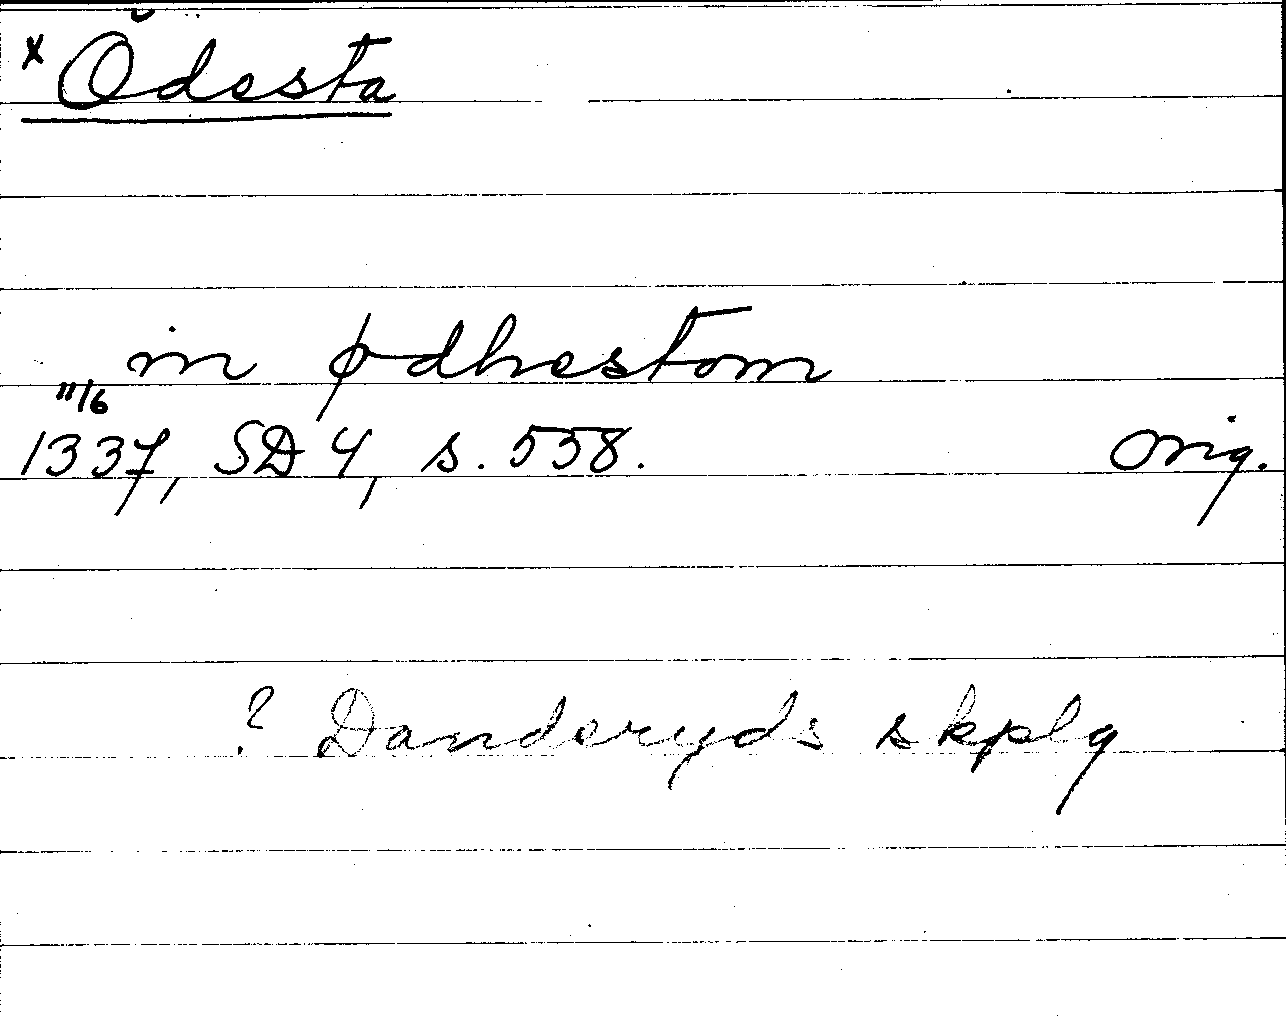 x Ödesta
in ødhestom
11/6
1337, SD 4, s. 558. Orig.
? Danderyds skplg